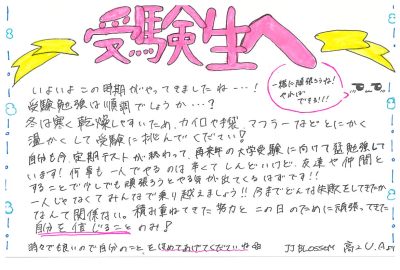 受験生へ
いよいよこの時期がやってきましたね…!
受験勉強は順調でしょうか…?
冬は寒く乾燥しやすいため、カイロや手袋、マフラーなどとにかく
温かくして受験に挑んでください!
一緒に頑張ろうね!
やればできる!!!
自分も今、定期テストが終わって、再来年の大学受験に向けて猛勉強して
います!何事も一人でやるのは辛くてしんどいけど、友達や仲間と
することで少しでも頑張ろうとやる気が出てくるはずです!!
一人じゃなくてみんなで乗り越えましょう!!今までどんな失敗をしてきたか
なんて関係ない。積み重ねてきた努力とこの日のために頑張ってきた
自分を信じることのみ!
時々でも良いので自分のことをほめてあげてくださいね
JJ BLOSSOM 高2 U.A